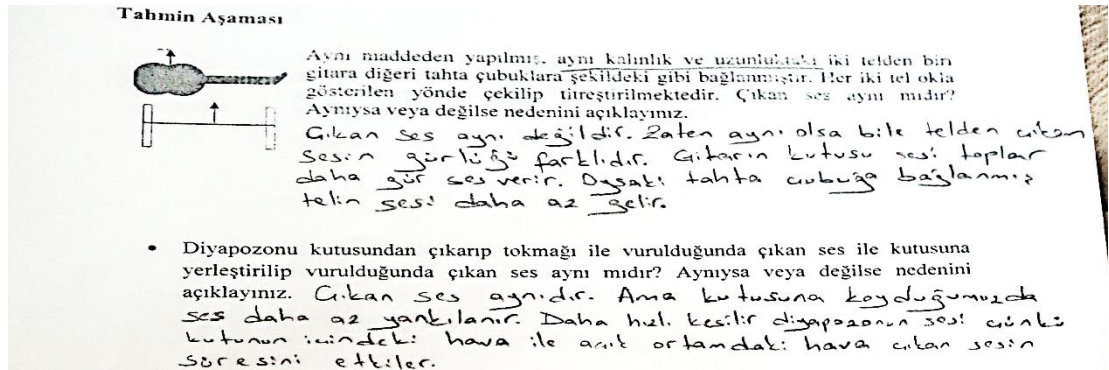 Tahmin Aşaması
Aynı maddeden yapılmış, aynı kalınlık ve uzunluktaki iki telden biri
gitara diğeri tahta çubuklara şekildeki gibi bağlanmıştır. Her iki tel okla
gösterilen yönde çekilip titreştirilmektedir. Çıkan ses aynı mıdır?
Aynıysa veya değilse nedenini açıklayınız.
Çıkan ses aynı değildir. Zaten aynı olsa bile telden çıkan
sesin gürlüğü farklıdır. Gitarın kutusu sesi toplar
daha gür ses verir. Oysaki tahta çubuğa bağlanmış
telin sesi daha az gelir.
• Diyapozonu kutusundan çıkarıp tokmağı ile vurulduğunda çıkan ses ile kutusuna
yerleştirilip vurulduğunda çıkan ses aynı mıdır? Aynıysa veya değilse nedenini
açıklayınız. Çıkan ses aynıdır. Ama kutusuna koyduğumuzda
ses daha az yankılanır. Daha hızlı kesilir diyapazonun sesi çünkü
kutunun içindeki hava ile açık ortamdaki hava çıkan sesin
süresini etkiler.